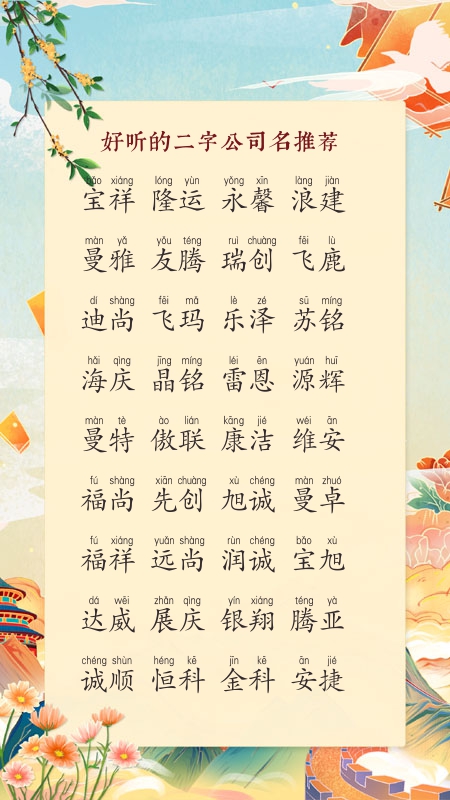 好听的二字公司名推荐
bǎo xiáng lóng yùn yǒng xīn làng jiàn
宝祥 隆运 永馨 浪建
màn yǎ yǒu téng ruì chuàng fēi lù
曼雅 友腾 瑞创 飞鹿
dí shàng fēi mǎ lè zé sū míng
迪尚 飞玛 乐泽 苏铭
hǎi qìng jīng míng léi ēn yuán huī
海庆 晶铭 雷恩 源辉
màn tè ào lián kāng jié wéi ān
曼特 傲联 康洁 维安
fú shàng xiān chuàng xù chéng màn zhuó
福尚 先创 旭诚 曼卓
fú xiáng yuǎn shàng rùn chéng bǎo xù
福祥 远尚 润诚 宝旭
dá wēi zhǎn qìng yín xiáng téng yà
达威 展庆 银翔 腾亚
chéng shùn héng kē jīn kē ān jié
诚顺 恒科 金科 安捷